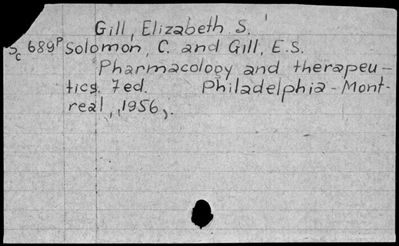 Gill, Elizabeth S.
Sc 689P Solomon, C. and Gill, E.S.
Pharmacology and therapeu-
tics. 7ed. Philadelphia-Mont-
real, 1956,.